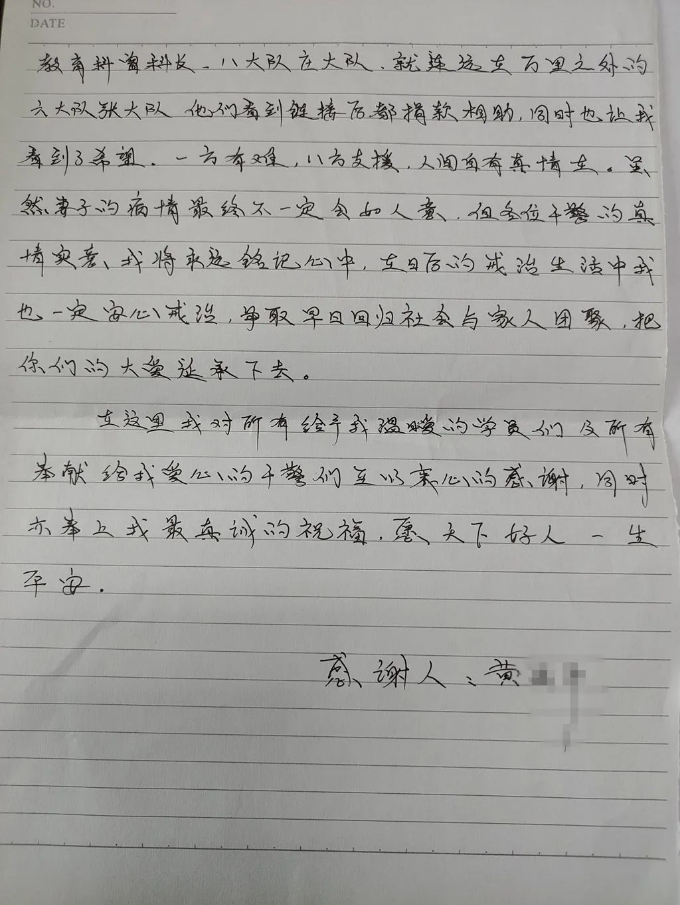 NO.
DATE
教育科曾科长、八大队庄大队、就连远在百里之外的
六大队张大队 他们看到链接后都捐款相助,同时也让我
看到了希望。一方有难,八方支援,人间自有真情在。虽
然妻子的病情最终不一定会如人意,但各位干警的真
情实意、我将永远铭记心中,在日后的戒治生活中我
也一定安心戒治,争取早日回归社会与家人团聚,把
你们的大爱延承下去。
在这里我对所有给予我温暖的学员们及所有
奉献给我爱心的干警们至以衷心的感谢,同时
亦奉上我最真诚的祝福,愿天下好人一生
平安.
感谢人:黄